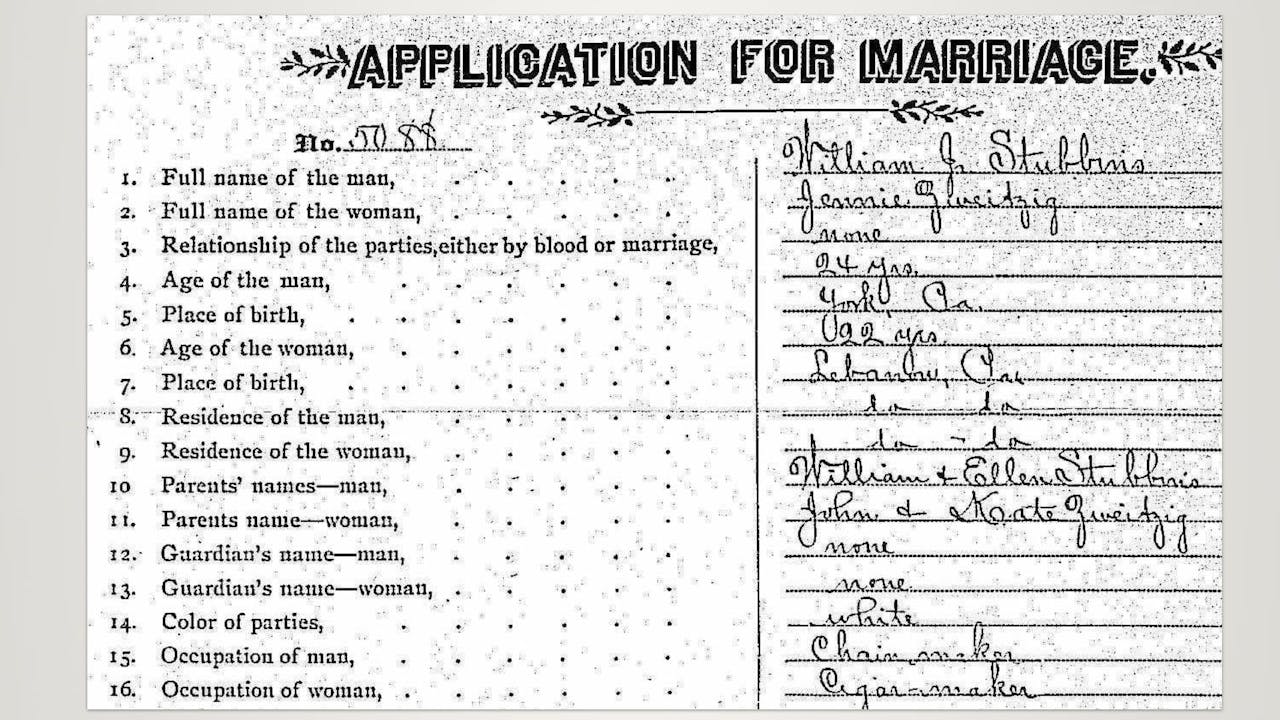 APPLICATION FOR MARRIAGE.
No. 5088
1. Full name of the man, William J. Stubbins
2. Full name of the woman, Jennie Zweitzig
3. Relationship of the parties, either by blood or marriage, none
4. Age of the man, 24 yrs.
5. Place of birth, York, Pa.
6. Age of the woman, 22 yrs.
7. Place of birth, Lebanon, Pa.
8. Residence of the man, do do
9. Residence of the woman, do - do
10 Parents' names—man, William & Ellen Stubbins
11. Parents name—woman, John & Kate Zweitzig
12. Guardian's name—man, none
13. Guardian's name—woman, none
14. Color of parties, white
15. Occupation of man, Chain maker
16. Occupation of woman, Cigar-maker